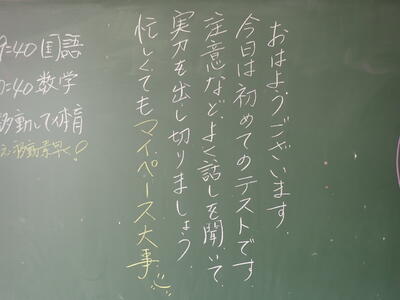 おはようございます.
今日は初めてのテストです
注意などよく話しを聞いて
実力を出し切りましょう
忙しくてもマイペース大事
9:40 国語
0:40 数学
移動して体育
移動素早く!